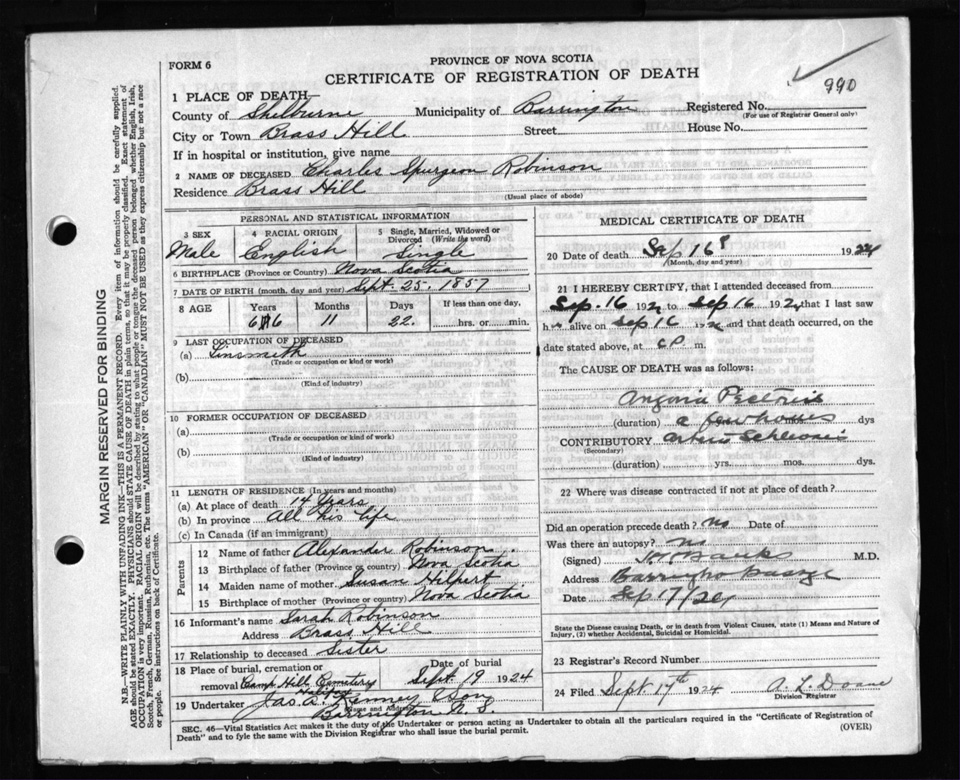 FORM 6
PROVINCE OF NOVA SCOTIA
CERTIFICATE OF REGISTRATION OF DEATH
990
1 PLACE OF DEATH—
County of Shelburne Municipality of Barrington Registered No.
(For use of Registrar General only)
City or Town Brass Hill Street House No.
If in hospital or institution, give name
2 NAME OF DECEASED Charles Spurgeon Robinson
Residence Brass Hill
(Usual place of abode)
PERSONAL AND STATISTICAL INFORMATION
3 SEX 4 RACIAL ORIGIN 5 Single, Married, Widowed or Divorced (Write the word)
Male English Single
6 BIRTHPLACE (Province or Country) Nova Scotia
7 DATE OF BIRTH (month, day and year) Sept. 25. 1857
8 AGE Years Months Days If less than one day,
11 22. hrs. or min.
9 LAST OCCUPATION OF DECEASED
(a) Tinsmith
(Trade or occupation or kind or work)
(b)
(Kind of industry)
10 FORMER OCCUPATION OF DECEASED
(a)
(Trade or occupation or kind of work)
(b)
(Kind of industry)
11 LENGTH OF RESIDENCE (In years and months)
(a) At place of death 14 Years
(b) In province All his life
(c) In Canada (if an immigrant)
Parents
12 Name of father Alexander Robinson
13 Birthplace of father (Province or country) Nova Scotia
14 Maiden name of mother Susan Hilpert
15 Birthplace of mother (Province or country) Nova Scotia
16 Informant's name Sarah Robinson
Address Brass Hill
17 Relationship to deceased Sister
18 Place of burial, cremation or removal Camp Hill Cemetery Halifax
Date of burial Sept. 19 1924
19 Undertaker Jas. A. Kenney & Son
(Name and Address)
Barrington N. S.
MEDICAL CERTIFICATE OF DEATH
20 Date of death Sep 16 1924
(Month, day and year)
21 I HEREBY CERTIFY, that I attended deceased from
Sep. 16 192 to Sep 16 192 that I last saw
h alive on Sep 16 192 and that death occurred, on
date stated above, at 6 P. m.
The CAUSE OF DEATH was as follows:
Angina Pectoris
(duration) a few hours mos. dys
CONTRIBUTORY Arterio Sclerosis
(Secondary)
(duration) yrs. mos. dys.
22 Where was disease contracted if not at place of death?
Did an operation precede death? No Date of
Was there an autopsy? No
(Signed) Banks M.D.
Address Barrington Passage
Date Sep 17/24
State the Disease causing Death, or in death from Violent Causes, state (1) Means and Nature of Injury, (2) whether Accidental, Suicidal or Homicidal.
23 Registrar's Record Number
24 Filed Sept. 17th 1924 A. L. Doane
Division Registrar
SEC. 46—Vital Statistics Act makes it the duty of the Undertaker or person acting as Undertaker to obtain all the particulars required in the "Certificate of Registration of
Death" and to fyle the same with the Division Registrar who shall issue the burial permit. (OVER)
MARGIN RESERVED FOR BINDING
N.B.—WRITE PLAINLY WITH UNFADING INK—THIS IS A PERMANENT RECORD. Every item of information should be carefully supplied.
AGE should be stated EXACTLY. PHYSICIANS should STATE CAUSE OF DEATH in plain terms, so that it may be properly classified. Exact statement of
OCCUPATION is very important. RACIAL ORIGIN will be described by stating to what people or tongue the deceased person belonged whether English, Irish,
Scotch, French, German, Russian, Ruthenian, etc. The terms "AMERICAN" OR "CANADIAN" MUST NOT BE USED as they express citizenship but not a race
or people. See instructions on back of Certificate.